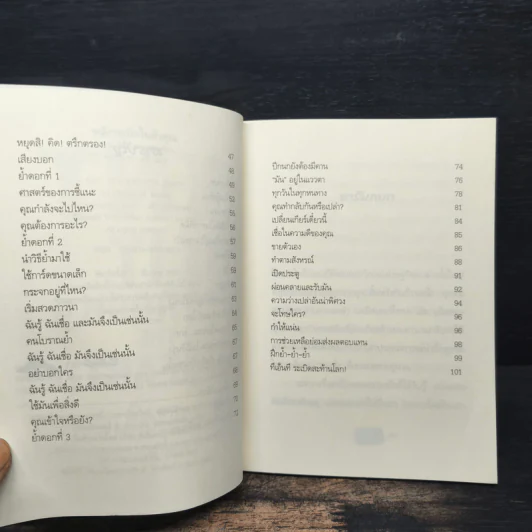 หยุดสิ! คิด! ตรึกตรอง!
เสียงบอก 47
ย้ำตอกที่ 1
ศาสตร์ของการชี้แนะ
คุณกำลังจะไปไหน?
คุณต้องการอะไร?
ย้ำตอกที่ 2
นำวิธีย้ำมาใช้
ใช้การ์ดขนาดเล็ก
กระจกอยู่ที่ไหน?
เริ่มสวดภาวนา
ฉันรู้ ฉันเชื่อ และมันจึงเป็นเช่นนั้น
คนโบราณย้ำ
ฉันรู้ ฉันเชื่อ มันจึงเป็นเช่นนั้น
อย่าบอกใคร
ฉันรู้ ฉันเชื่อ มันจึงเป็นเช่นนั้น
ใช้มันเพื่อสิ่งดี
คุณเข้าใจหรือยัง?
ย้ำตอกที่ 3
ปีกนกยังต้องมีคาน 74
"มัน" อยู่ในแววตา 76
ทุกวันในทุกหนทาง 78
คุณทำกลับกันหรือเปล่า? 81
เปลี่ยนเกียร์เดี๋ยวนี้ 84
เชื่อในความดีของคุณ 85
ขายตัวเอง 86
ทำตามสังหรณ์ 88
เปิดประตู 91
ผ่อนคลายและรับมัน 92
ความว่างเปล่าอันน่าพิศวง 94
จะโทษใคร? 96
ทำให้แน่น 96
การช่วยเหลือย่อมส่งผลตอบแทน 98
ฝึกย้ำ-ย้ำ-ย้ำ 99
ทีเอ็นที ระเบิดสะท้านโลก! 101